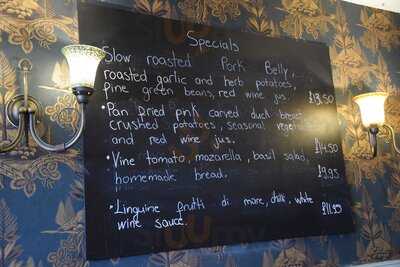 Specials
Slow roasted Pork Belly,
roasted garlic and herb potatoes,
fine green beans, red wine jus. £13.50
* Pan fried pink carved duck breast
crushed potatoes, seasonal vegetables
and red wine jus. £14.50
* Vine tomato, mozarella, basil salad, £9.95
homemade bread.
* Linguine frutti di mare, chilli, white £11.95
wine sauce.